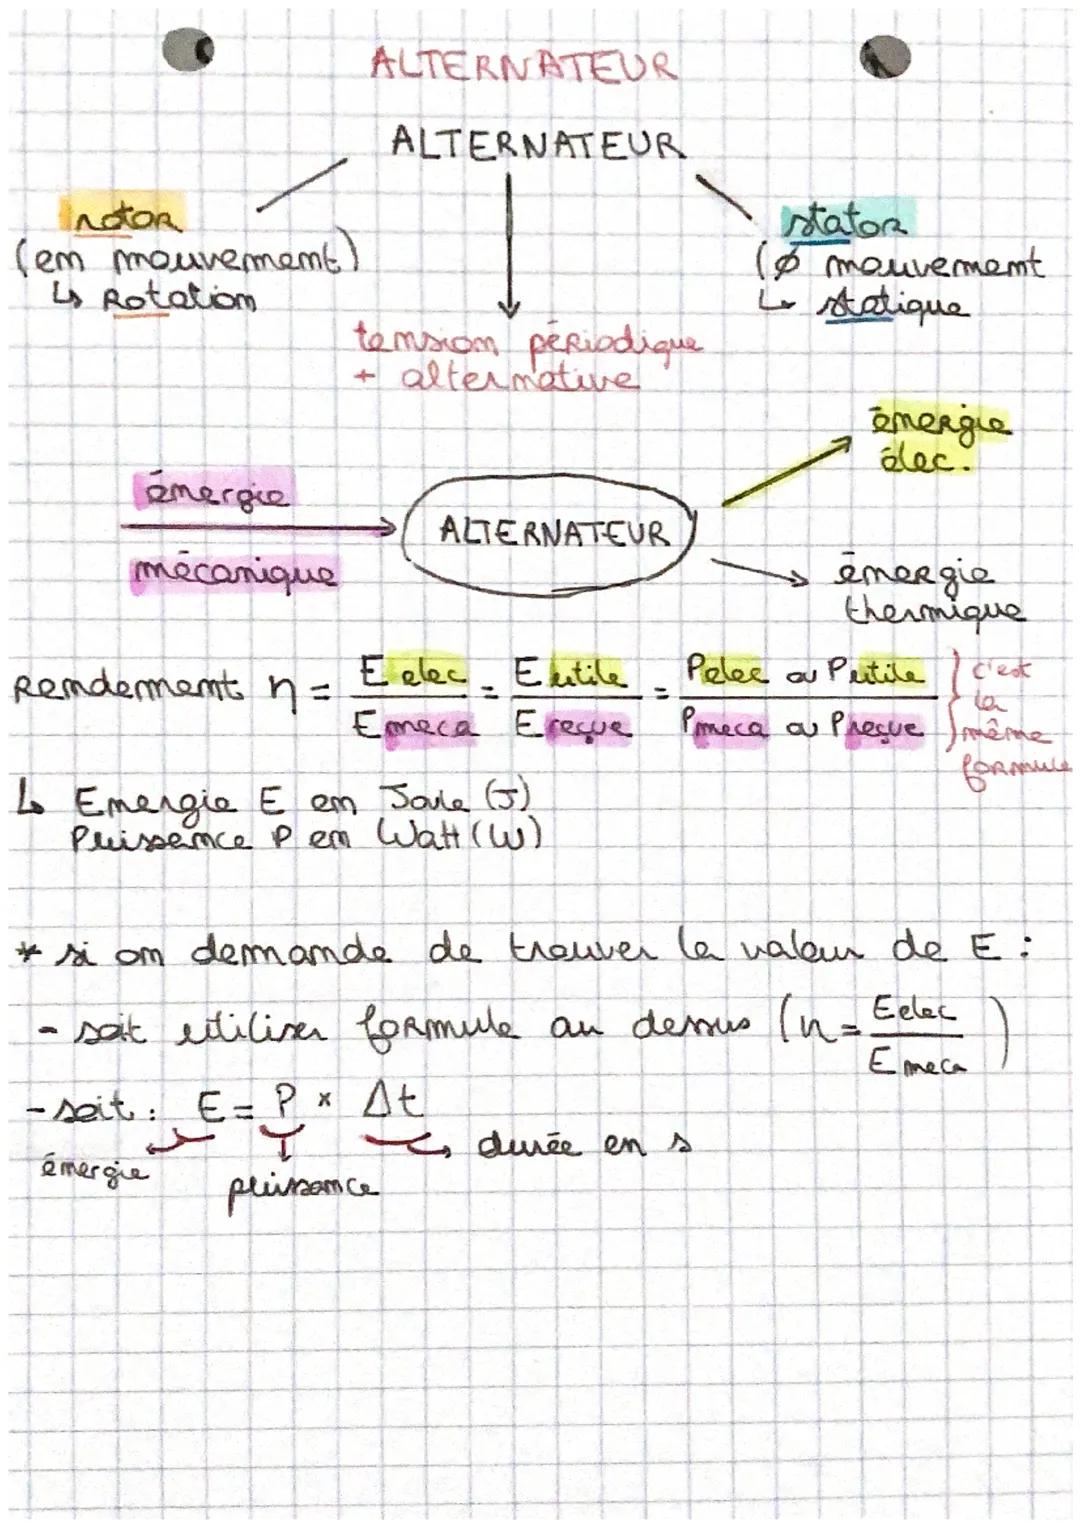 ALTERNATEUR
ALTERNATEUR
rotor
(en mouvement)
↳ Rotation
stator
(Ø mouvement
↳ statique
tension périodique
+ alternative
énergie
élec.
énergie
mécanique
ALTERNATEUR
énergie
thermique
Rendement η = E elec / E meca = E utile / E reçue = Pelec ou Putile / Pmeca ou Preçue } c'est la même formule
↳ Energie E en Joule (J)
Puissance P en Watt (W)
* si on demande de trouver la valeur de E :
- soit utiliser formule au dessus (η = E elec / E meca)
- soit : E = P × Δt
énergie
puissance
durée en s